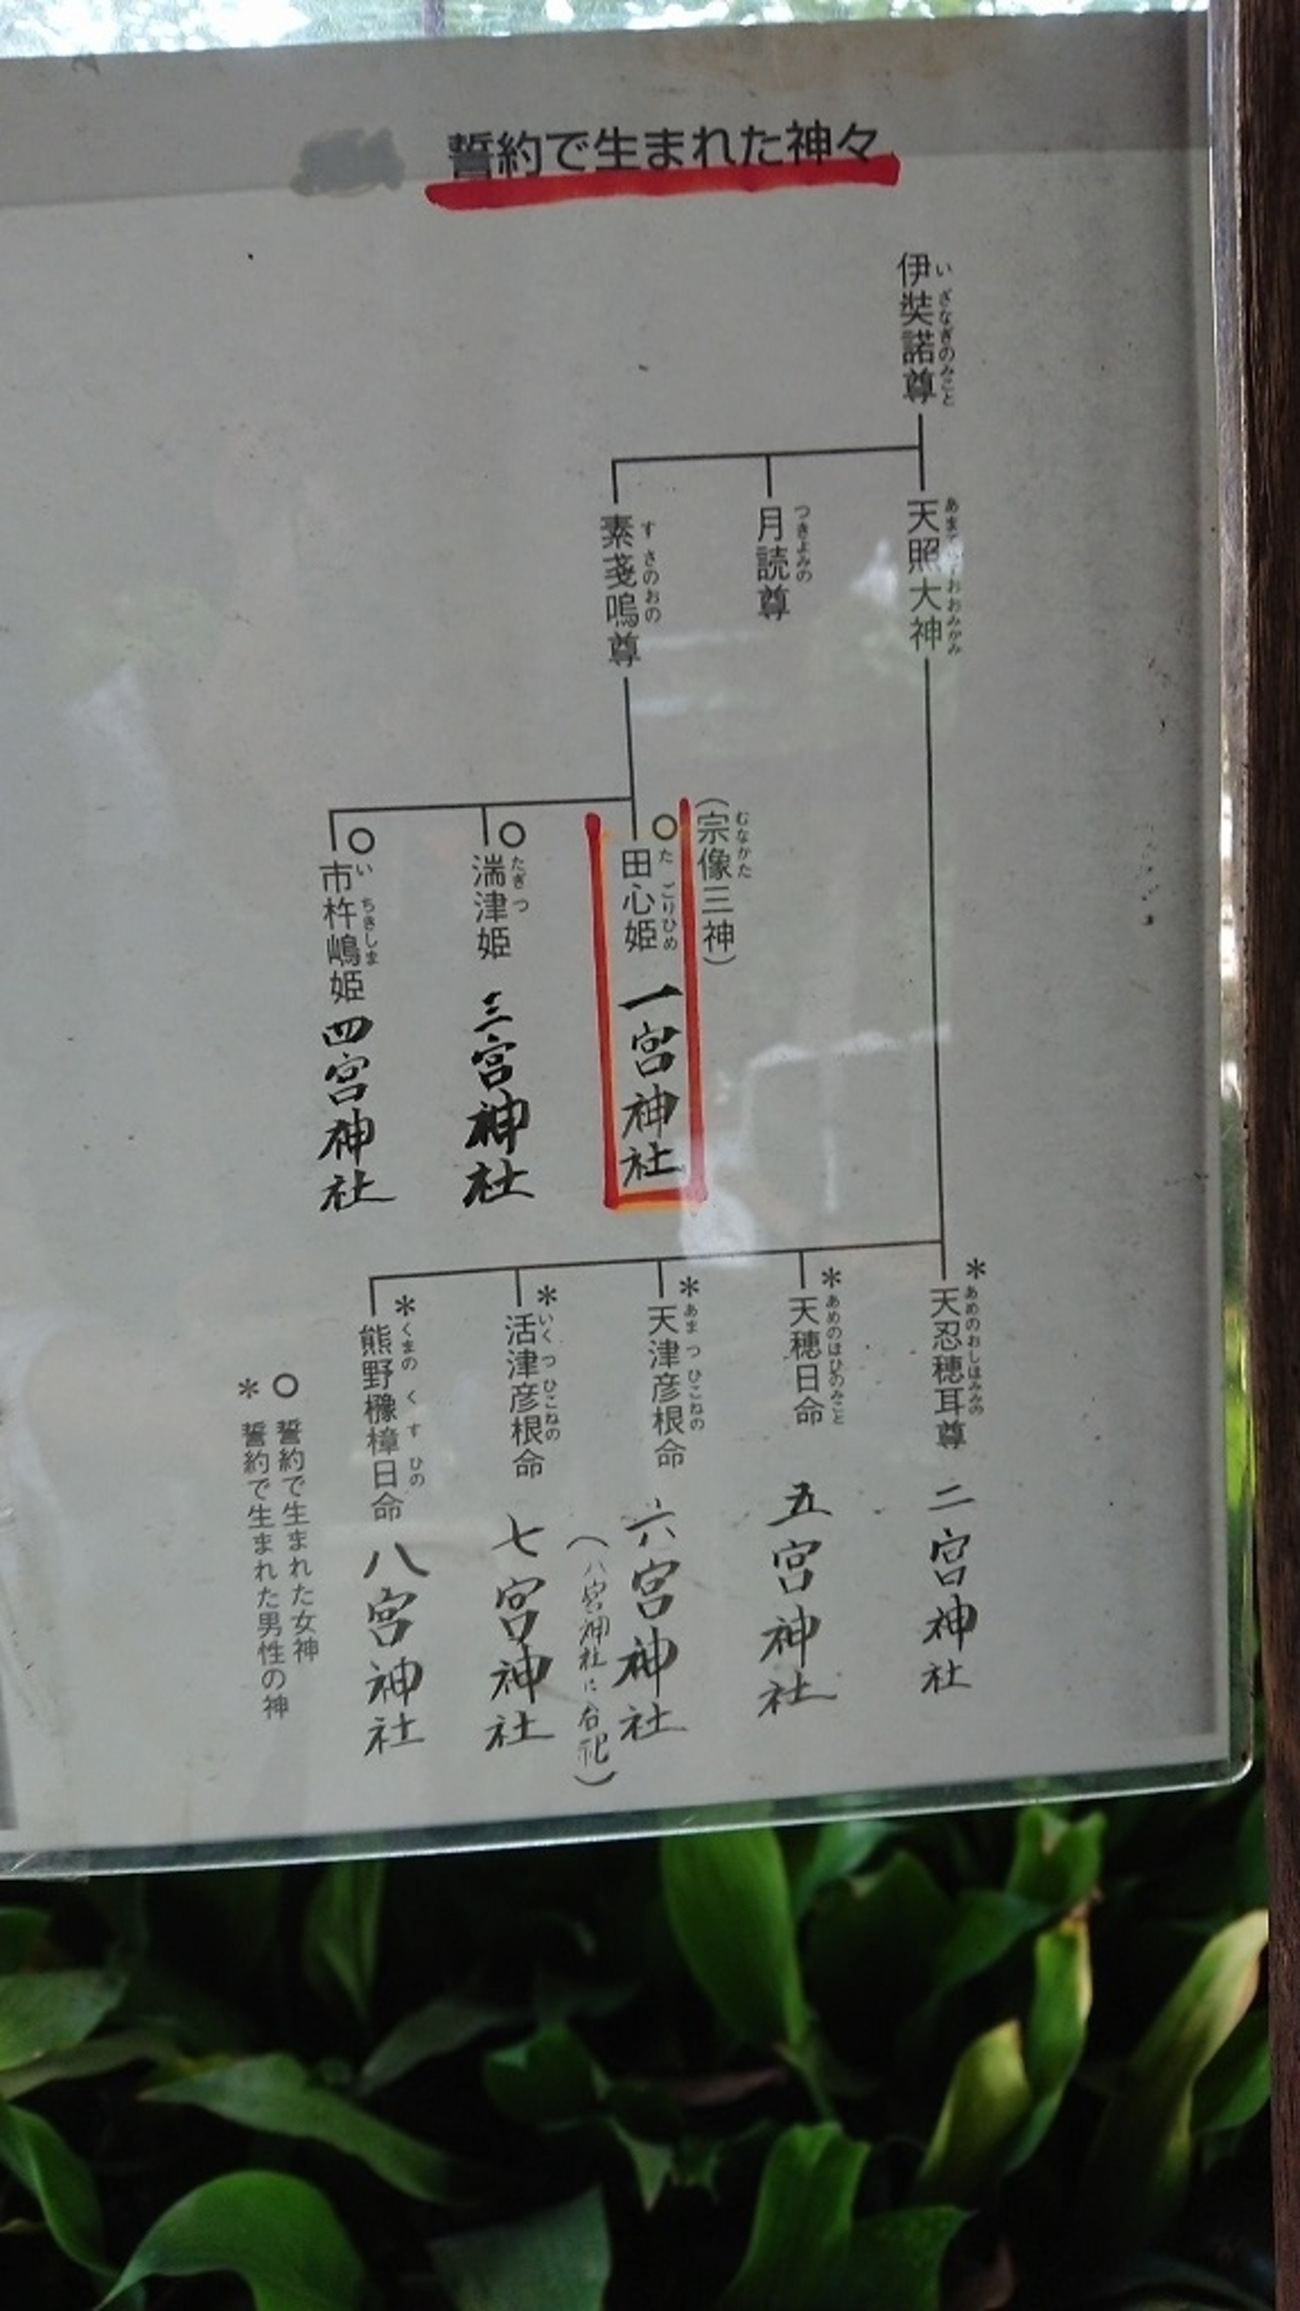 誓約で生まれた神々
伊奘諾尊
いざなぎのみこと
天照大神
月読尊
つきよみの
素戔嗚尊
すさのおの
(宗像三神)
むなかた
田心姫 一宮神社
たごりひめ
湍津姫 三宮神社
たぎつ
市杵嶋姫 四宮神社
いちきしま
*
天忍穂耳尊 二宮神社
あめのおしほみみの
*
天穂日命 五宮神社
あめのほひのみこと
*
天津彦根命 六宮神社
あまつひこねの
(八宮神社に合祀)
*
活津彦根命 七宮神社
いくつひこねの
*
熊野櫲樟日命 八宮神社
くまのくすひの
○ 誓約で生まれた女神
* 誓約で生まれた男性の神